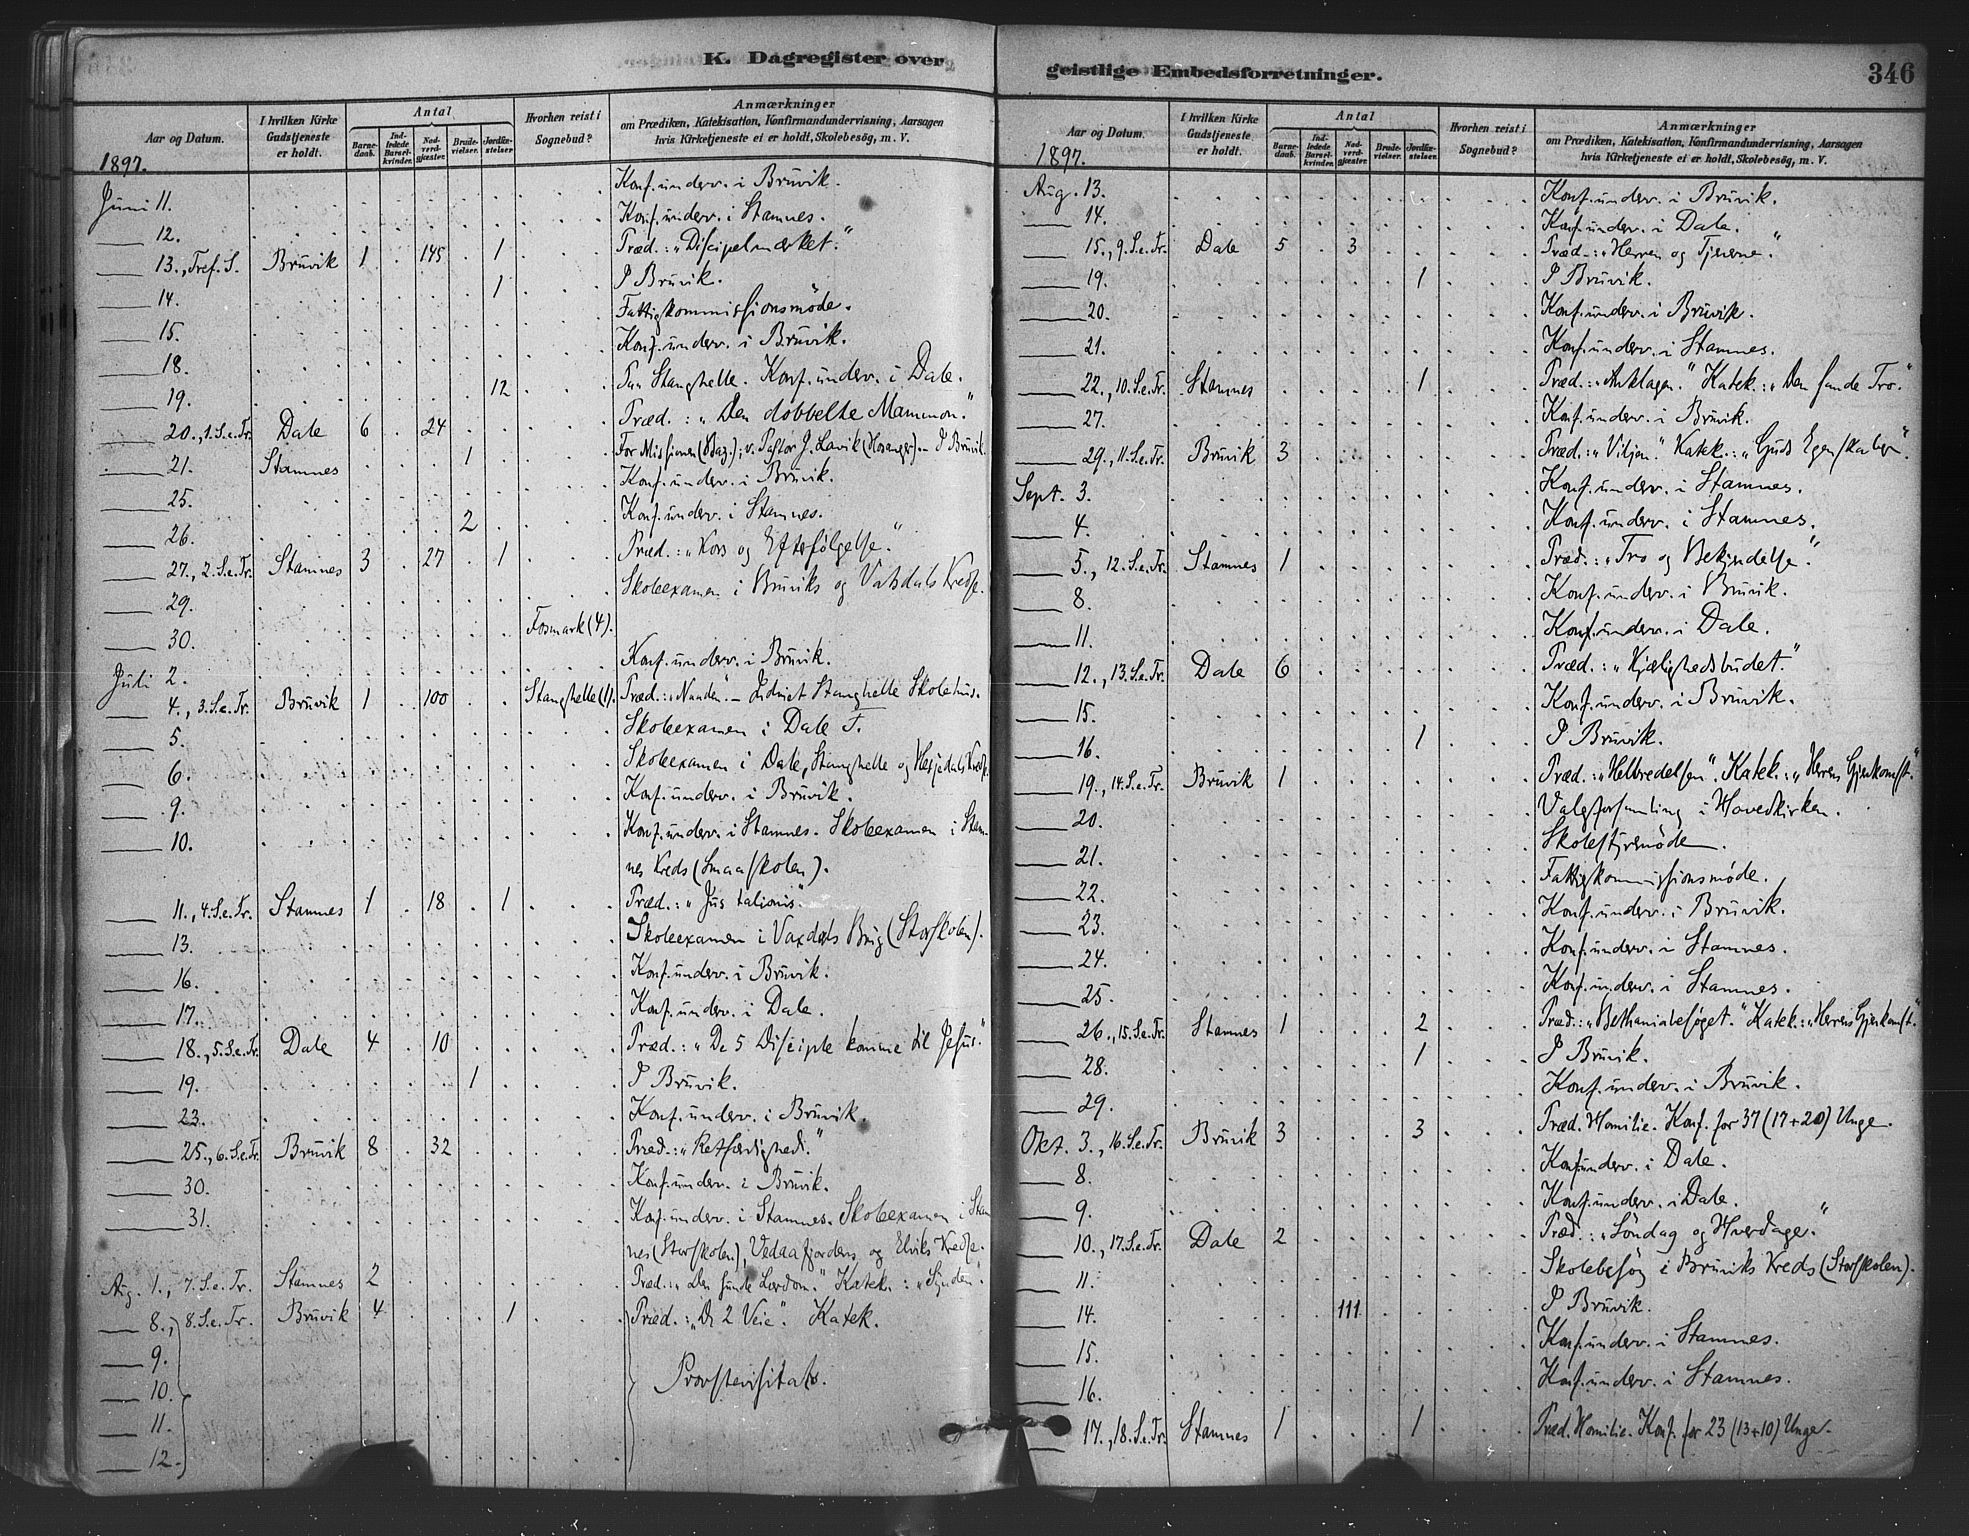 K. Dagregister over
Aar og Datum.
I hvilken Kirke Gudstjeneste er holdt.
Antal
Barnedaab.
Indledede Barselkvinder.
Nadverdgjæster.
Brudevielser.
Jordfæstelser
Hvorhen reist i Sognebud?
Anmærkninger
om Prædiken, Katekisation, Konfirmandundervisning, Aarsagen
hvis Kirketjeneste ei er holdt, Skolebesög, m. V.
1897.
Juni 11. Konf.underv. i Bruvik.
12. Konf.underv. i Stamnes.
13., Tref. S. Bruvik 1 145 1 Præd.: „Discipelmærket."
14. 1 I Bruvik.
15. Fattigkommissionsmöde.
18. Konf.underv. i Bruvik.
19. 12 Paa Stanghelle. Konf.underv. i Dale.
20., 1.S.e.Tr. Dale 6 24 Præd.: „Den dobbelte Mammon."
21. Stamnes 1 For Missionen; v. Pastor J. Lavik (Hosanger). – I Bruvik.
25. Konf.underv. i Bruvik.
26. 2 Konf.underv. i Stamnes.
27., 2.S.e.Tr. Stamnes 3 27 1 Præd.: „Kors og Efterfölgelse."
29. Skoleexamen i Bruviks og Vaxdals Kredse.
30. Fosmark (4).
Juli 2. Konf.underv. i Bruvik.
4., 3.S.e.Tr. Bruvik 1 100 Stanghelle (1). Præd.: „Naaden". – Indviet Stanghelle Skolehus.
5. Skoleexamen i Dale F.
6. Skoleexamen i Dale, Stanghelle og Hesjedals Kredse.
9. Konf.underv. i Bruvik.
10. Konf.underv. i Stamnes. Skoleexamen i Stam-
nes Kreds (Smaaskolen).
11., 4.S.e.Tr. Stamnes 1 18 1 Præd.: „Jus talionis".
13. Skoleexamen i Vaxdals Brug (Storskolen).
16. Konf.underv. i Bruvik.
17. Konf.underv. i Dale.
18., 5.S.e.Tr. Dale 4 10 Præd.: „De 5 Disciple komme til Jesus."
19. 1 I Bruvik.
23. Konf.underv. i Bruvik.
25., 6.S.e.Tr. Bruvik 8 32 Præd.: „Retfærdighed."
30. Konf.underv. i Bruvik.
31. Konf.underv. i Stamnes. Skoleexamen i Stam
nes (Storskolen), Vedaafjordens og Elviks Kredse.
Aug. 1., 7.S.e.Tr. Stamnes 2 Præd.: „Den sunde Lærdom." Katek.: „Synden".
8., 8.S.e.Tr. Bruvik 4 1 Præd.: „De 2 Veie". Katek.
9.
10. Provstevisitats.
11.
12.
geistlige Embedsforretninger.
346
Aar og Datum.
I hvilken Kirke Gudstjeneste er holdt.
Antal
Barnedaab.
Indledede Barselkvinder.
Nadverdgjæster.
Brudevielser.
Jordfæstelser.
Hvorhen reist i Sognebud?
Anmærkninger
om Prædiken, Katekisation, Konfirmandundervisning, Aarsagen
hvis Kirketjeneste ei er holdt, Skolebesög, m. V.
1897.
Aug. 13. Konf.underv. i Bruvik.
14. Konf.underv. i Dale.
15., 9.S.e.Tr. Dale 5 3 Præd.: „Herren og Tjenerne."
19. 1 I Bruvik.
20. Konf.underv. i Bruvik.
21. Konf.underv. i Stamnes.
22., 10.S.e.Tr. Stamnes 1 Præd.: „Anklagen." Katek.: „Den sande Tro."
27. Konf.underv. i Bruvik.
29., 11.S.e.Tr. Bruvik 3 Præd.: „Viljen". Katek.: „Guds Egenskaber".
Sept. 3. Konf.underv. i Stamnes.
4. Konf.underv. i Stamnes.
5., 12.S.e.Tr. Stamnes 1 Præd.: „Tro og Bekjendelse."
8. Konf.underv. i Bruvik.
11. Konf.underv. i Dale.
12., 13.S.e.Tr. Dale 6 Præd.: „Kjærlighedsbudet."
15. Konf.underv. i Bruvik.
16. 1 I Bruvik.
19., 14.S.e.Tr. Bruvik 1 Præd.: „Helbredelsen". Katek.: „Herrens Gjenkomst."
20. Valgforsamling i Hovedkirken.
21. Skolestyremöde.
22. Fattigkommissionsmöde.
23. Konf.underv. i Bruvik.
24. Konf.underv. i Stamnes.
25. Konf.underv. i Stamnes.
26., 15.S.e.Tr. Stamnes 1 2 Præd.: „Bethaniabesöget." Katek.: „Herrens Gjenkomst."
28. 1 I Bruvik.
29. Konf.underv. i Bruvik.
Okt. 3., 16.S.e.Tr. Bruvik 3 3 Præd. Homilie. Konf. for 37 (17+20) Unge.
8. Konf.underv. i Dale.
9. Konf.underv. i Dale.
10., 17.S.e.Tr. Dale 2 Præd.: „Söndag og Hverdage."
11. Skolebesög i Bruviks Kreds (Storskolen).
14. 111 I Bruvik.
15. Konf.underv. i Stamnes.
16. Konf.underv. i Stamnes.
17., 18.S.e.Tr. Stamnes 1 1 Præd. Homilie. Konf. for 23 (13+10) Unge.